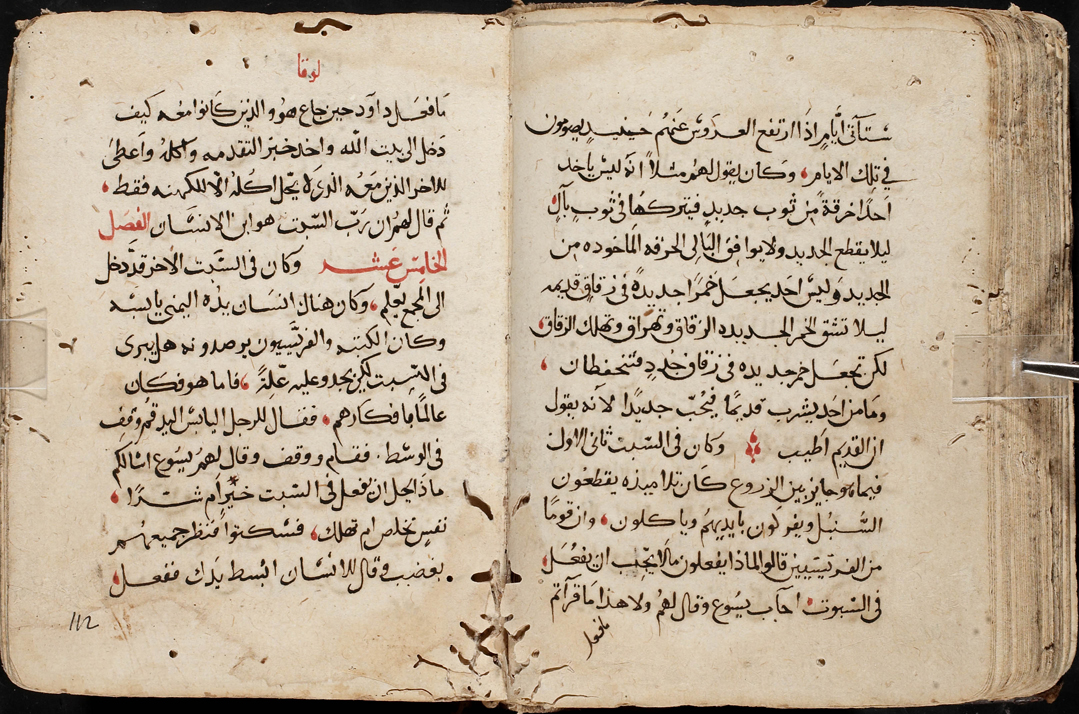 ستاتى ايام اذا ارتفع العروس عنهم حينيد يصومون
فى تلك الايام، وكان يقول لهم مثلاً انه ليس ياخد
احدا خرقة من ثوب جديد فيتركها فى ثوب بال،
ليلا يقطع الجديد ولا يوافق البالى الخرقه الماخوده من
الجديد وليس احد يجعل خمرا جديدة فى زقاق قديمه
ليلا تشق الخمر الجديده الزقاق وتهراق وتهلك الزقاق،
لكن تجعل خمر جديده فى زقاق جدد فتنحفظان ،
وما من احد يشرب قديما فيحب جديدا لانه يقول
ان القديم اطيب وكان فى السبت ثانى الاول
فيما هو جايز بين الزروع كان تلاميذه يقطعون
السنبل ويفركون بايديهم وياكلون، وان قوما
من الفرتيسيين قالوا لماذا يفعلون ما لا يجب ان يفعل،
فى السبوت، اجاب يسوع وقال لهم ولا هذا ما قراتم
مافعل
لوقا
ما فعل داود حين جاع هو والذين كانوا معه كيف
دخل الى بيت الله واخد خبز التقدمه واكله واعطى
للاخر الذين معه الدى لا يحل اكله الا للكهنه فقط،
ثم قال لهم ان رب السبت هو ابن الانسان الفصل
الخامس عشر وكان فى السبت الاخر قد دخل
الى المجمع يعلم، وكان هناك انسان يده اليمنى يابسه
وكان الكتبه والفرتسيون يرصدونه هل يبرى
فى السبت لكن يجدو عليه علة، فاما هو فكان
عالما بافكارهم، فقال للرجل اليابس اليد قم وقف
فى الوسط. فقام ووقف وقال لهم يسوع اسالكم
ماذا يحل ان يفعل فى السبت خير ام شرا،
نفس تخلص ام تهلك، فسكتوا فنظر جميعهم
بغضب وقال للانسان ابسط يدك ففعل،
112